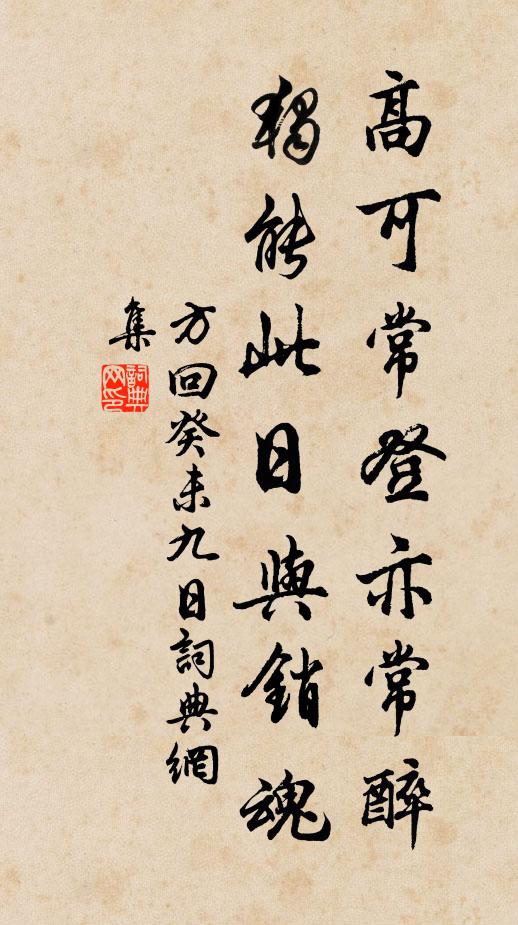 高可常登亦常醉
獨能此日與銷魂
方回癸未九日詞典網
集
詞典网印